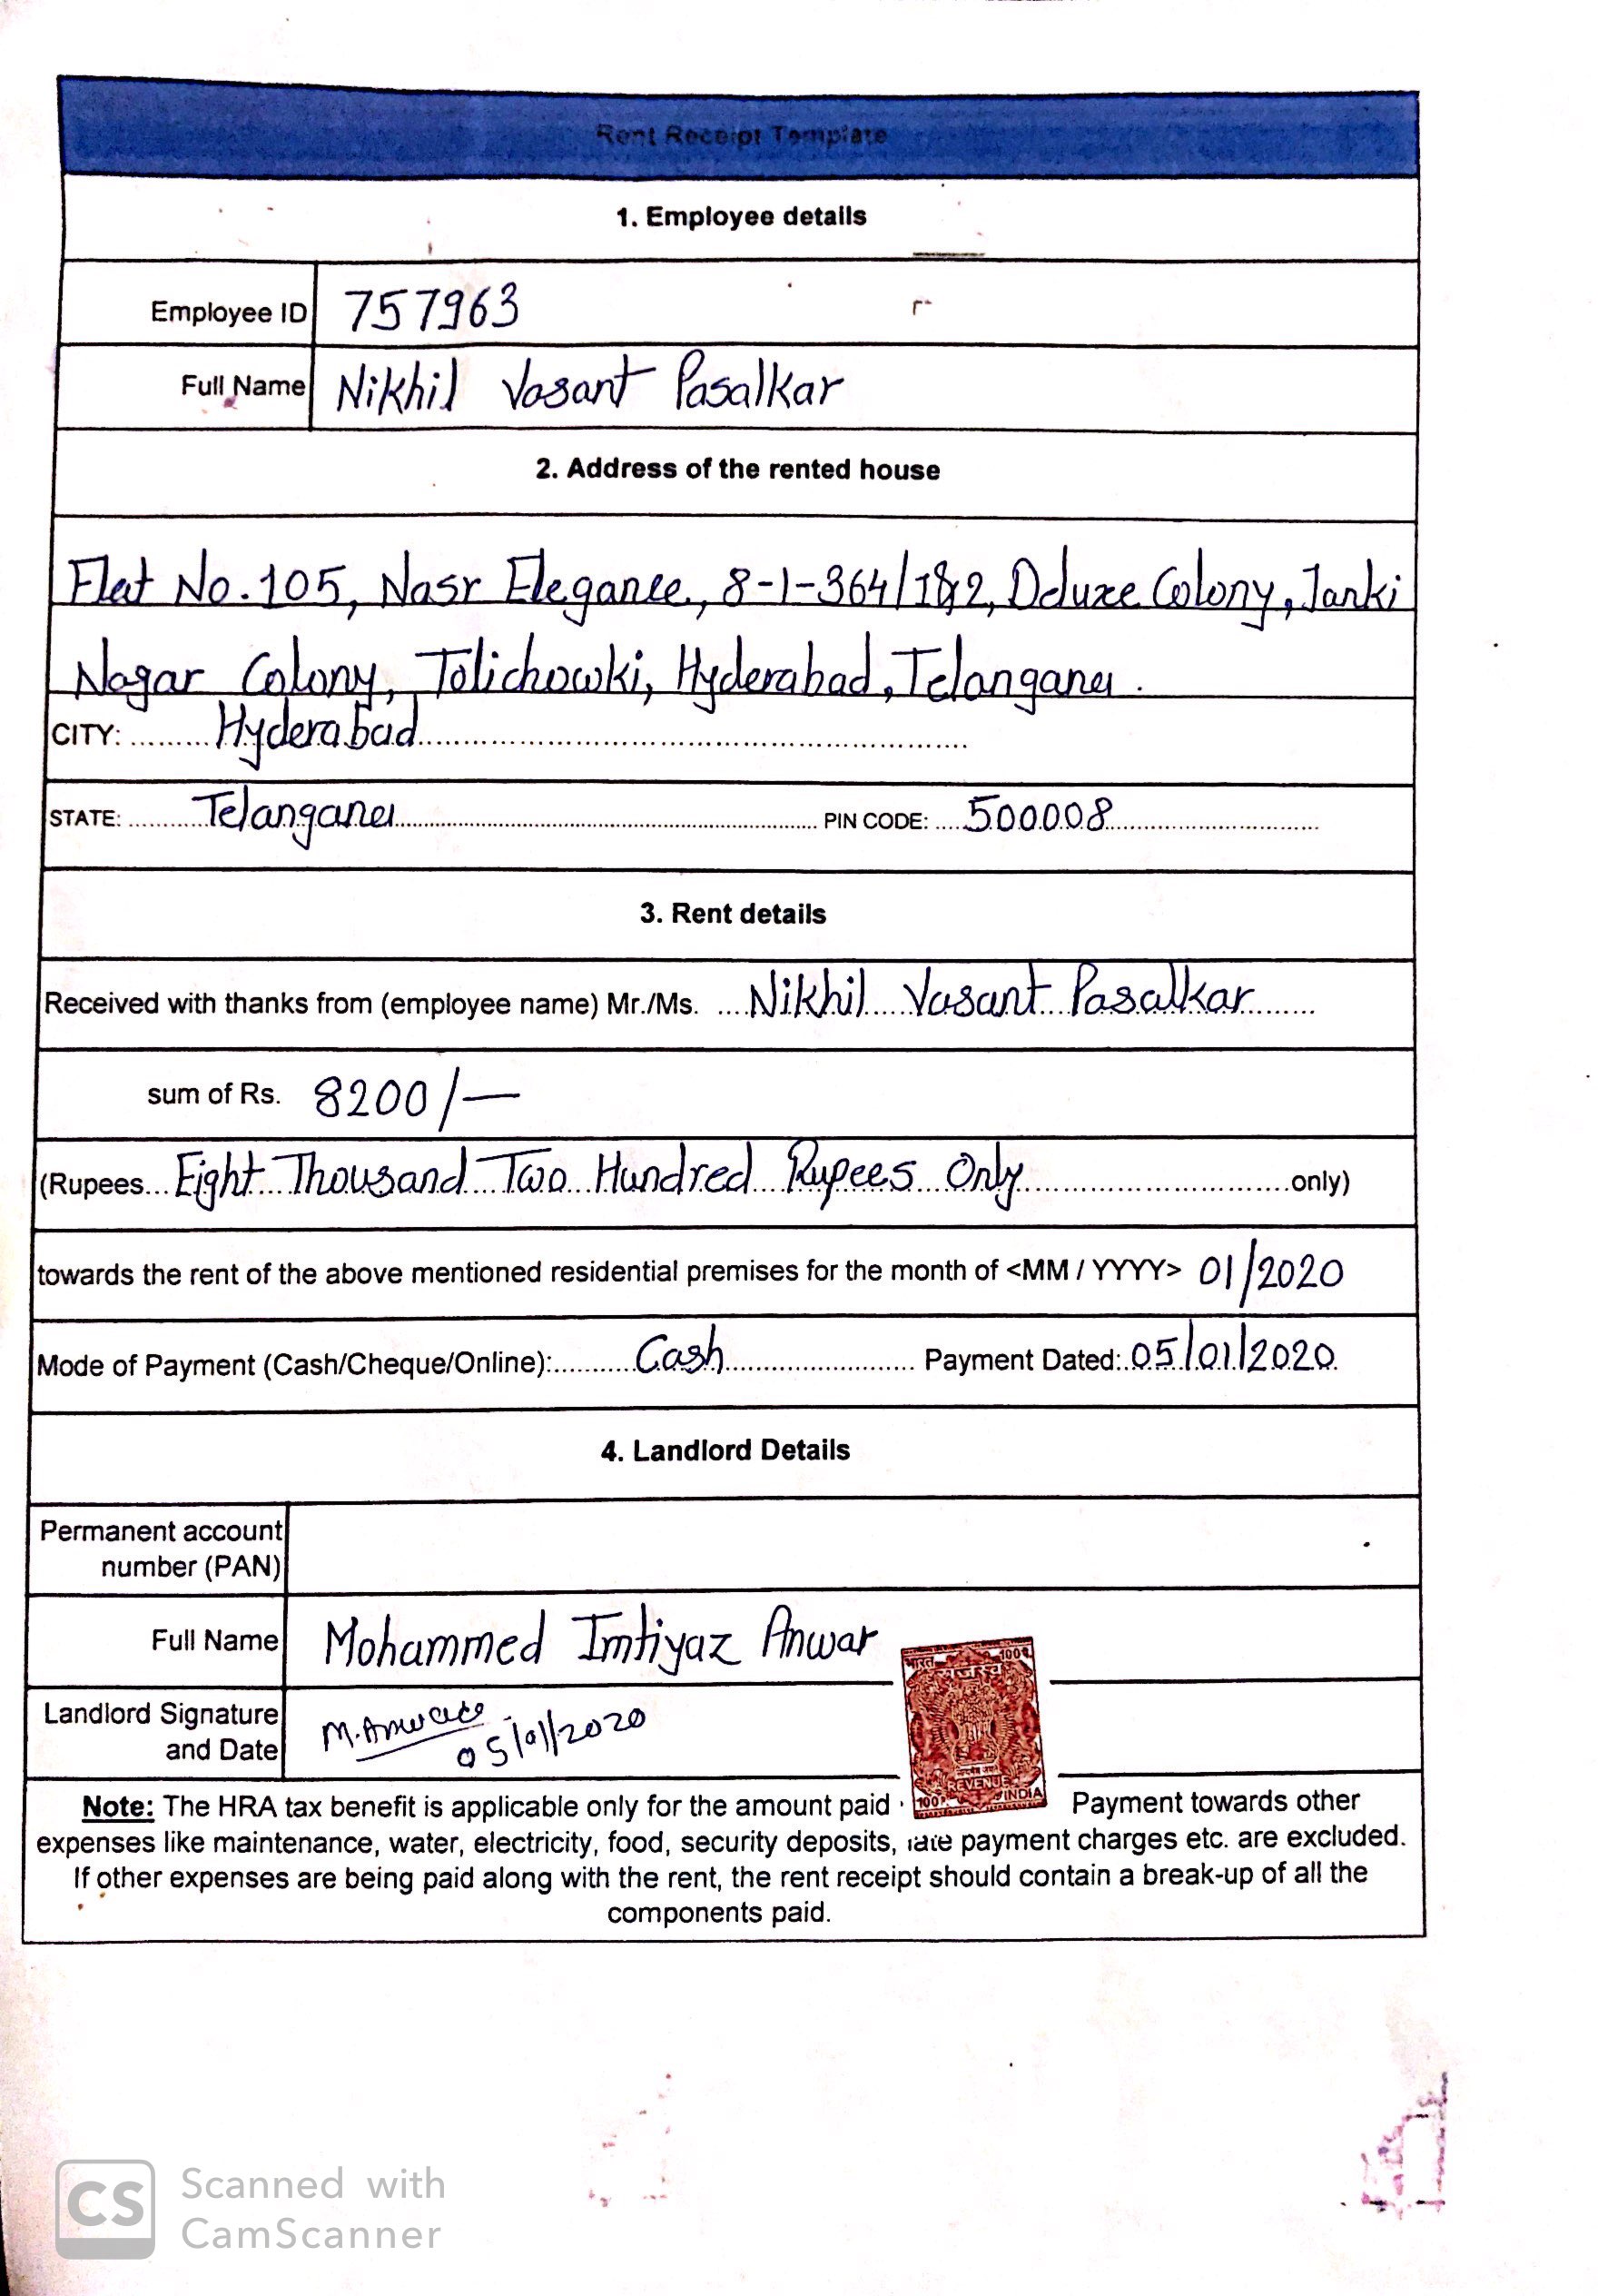 Rent Receipt Template
1. Employee details
Employee ID 757963
Full Name Nikhil Vasant Pasalkar
2. Address of the rented house
Flat No. 105, Nasr Elegance, 8-1-364/1&2, Deluxe Colony, Janki
Nagar Colony, Tolichowki, Hyderabad, Telangana.
CITY: ......... Hyderabad ..........
STATE: .......... Telangana .......... PIN CODE: .... 500008 ..........
3. Rent details
Received with thanks from (employee name) Mr./Ms. .... Nikhil Vasant Pasalkar ........
sum of Rs. 8200/-
(Rupees... Eight Thousand Two Hundred Rupees Only ..........only)
towards the rent of the above mentioned residential premises for the month of <MM / YYYY> 01/2020
Mode of Payment (Cash/Cheque/Online):.......... Cash .......... Payment Dated: 05/01/2020
4. Landlord Details
Permanent account
number (PAN)
Full Name Mohammed Imtiyaz Anwar
Landlord Signature
and Date 05/01/2020
भारत 100
REVENUE
100 INDIA
Note: The HRA tax benefit is applicable only for the amount paid Payment towards other
expenses like maintenance, water, electricity, food, security deposits, late payment charges etc. are excluded.
If other expenses are being paid along with the rent, the rent receipt should contain a break-up of all the
components paid.
CS Scanned with
CamScanner